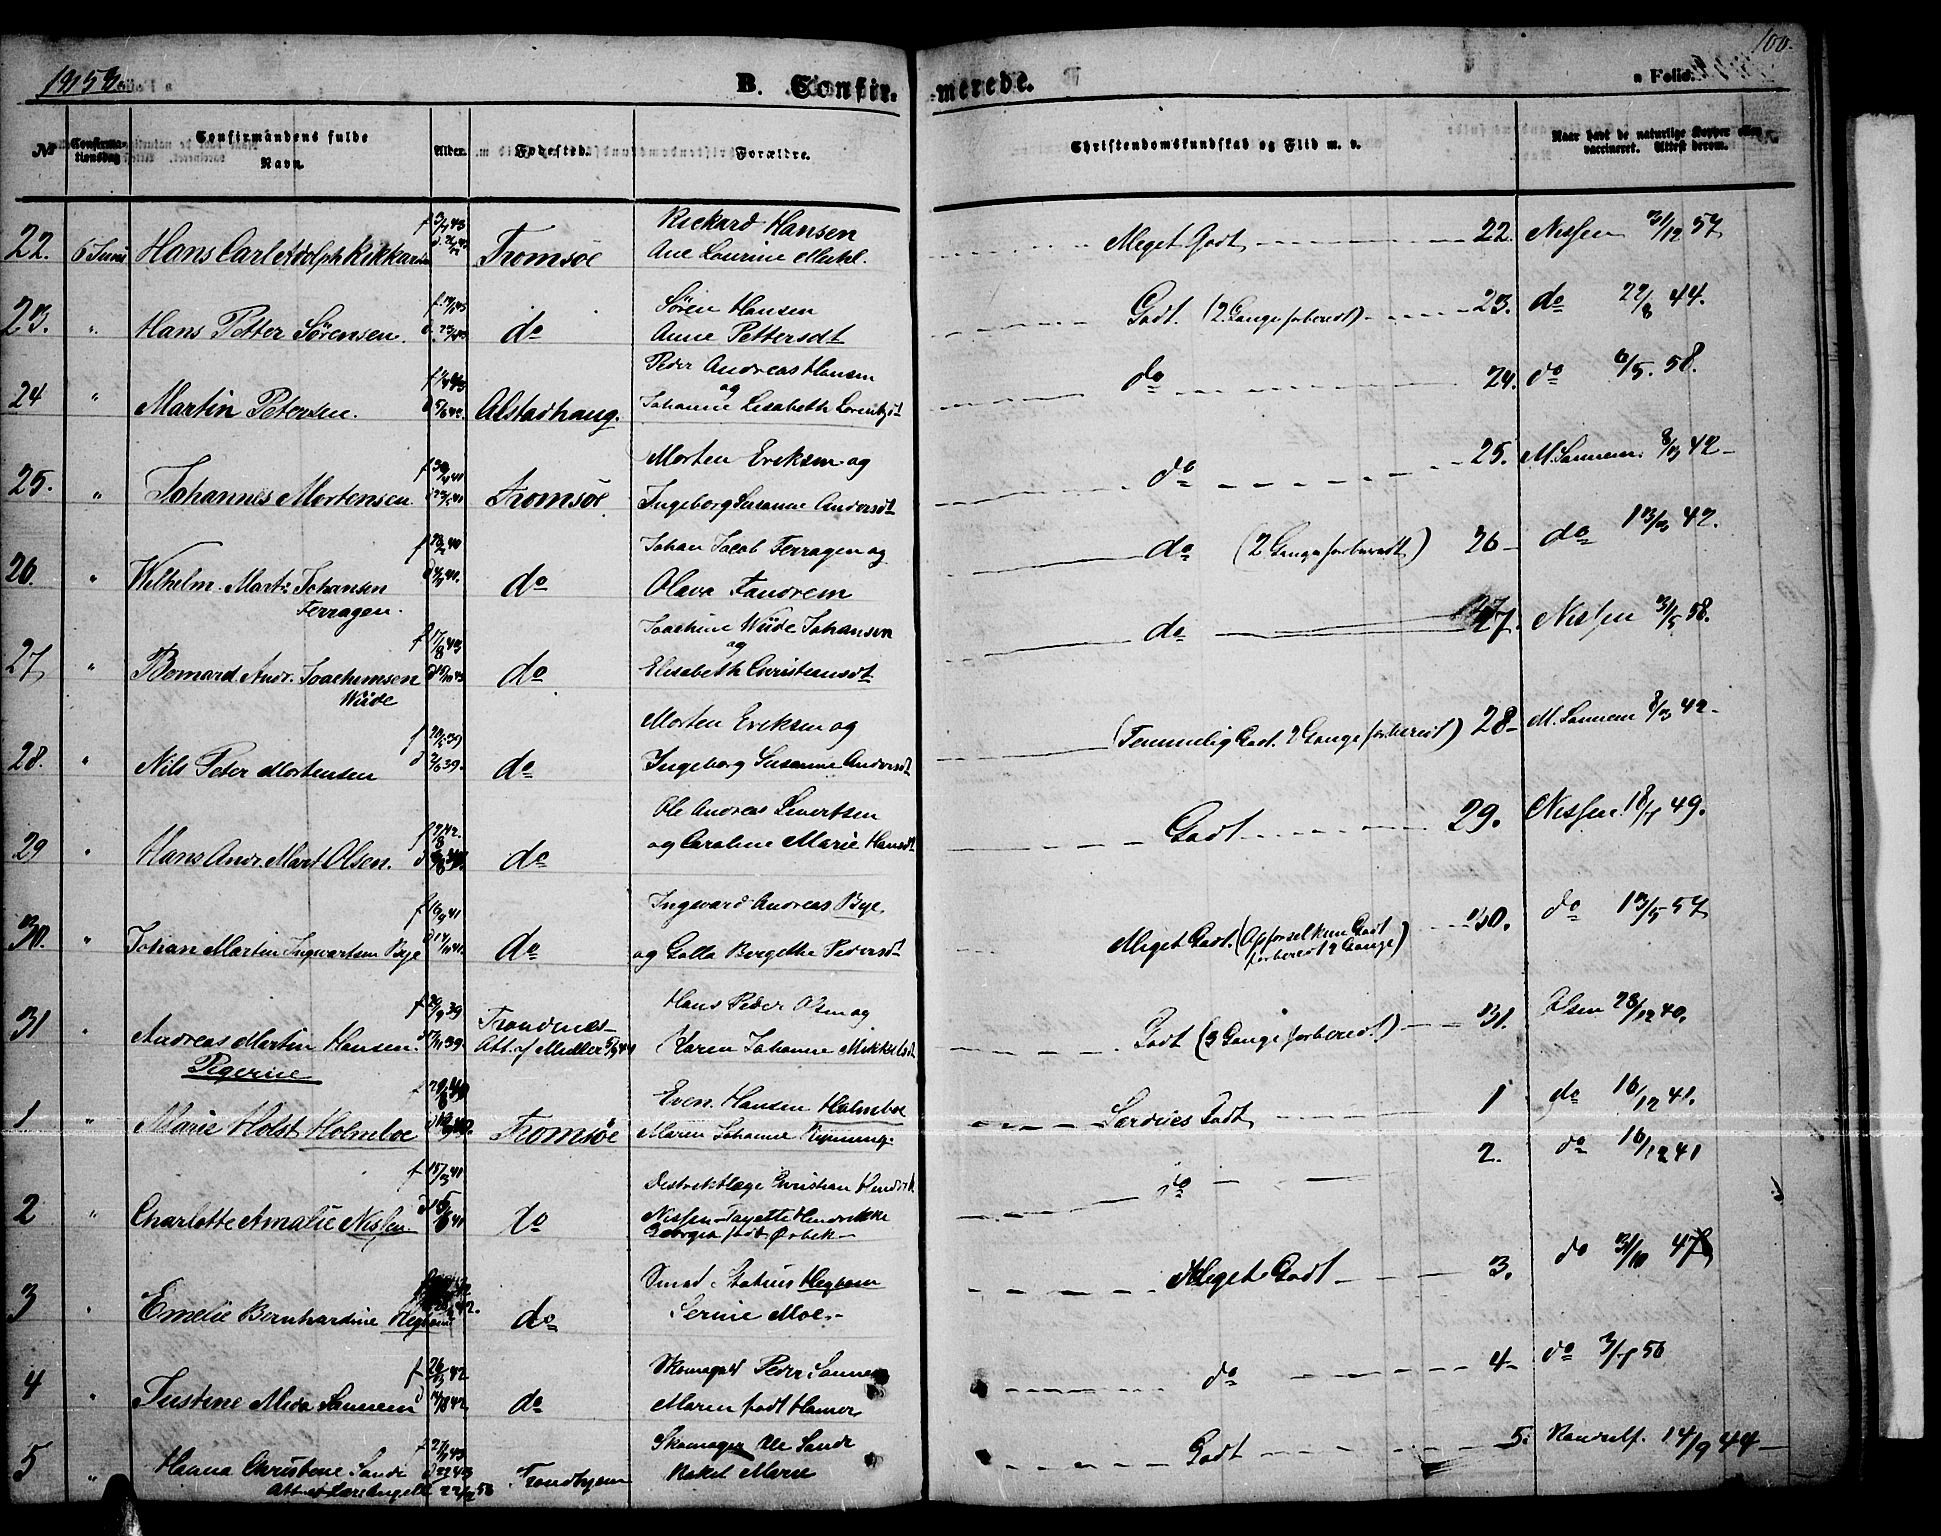 100.
1858
B. Confir- merede.
Folio.
No
Confirmationsdag
Confirmandens fulde Navn.
Alder.
Fødested.
Forældre.
Christendomskundskab og Flid m. v.
Naar havt de naturlige Kopper eller vaccineret. Attest derom.
22. 6 Juni Hans Carl Adolph Rikkardsen Tromsøe Rickard Hansen
Ane Laurine Michl. Meget Godt 22. Nissen 31/12 57
23. " Hans Petter Sørensen. do Søren Hansen
Anne Pettersdt Godt. (2 Gange forberedt) 23. do 22/8 44.
24 " Martin Petersen. Alstadhaug. Peder Andreas Hansen
og
Johanne Lisabeth Lorentzdt do 24. do 6/5. 58.
25. " Johannes Mortensen. Tromsøe Morten Eriksen og
Ingeborg Susanne Andersdt do 25. M. Sannem. 8/3 42
26. " Wilhelm. Mart: Johansen
Ferragen. do Johan Jacob Ferragen og
Olava Fandrem do (2 Gange forberedt) 26 do 13/3 42.
27 " Bernard Andr. Joachimsen
Wüde do Joachim Wüde Johansen
og
Elisabeth Christiansdt do 27. Nissen 31/5 58.
28. " Nils Peter Mortensen do Morten Eriksen og
Ingeborg Susanne Andersdt (Temmelig Godt. 2 Gange forberedt) 28 M. Sannem 8/3 42
29 " Hans Andr. Mart Olsen. do Ole Andreas Sivertsen
og Caroline Marie Hansdt Godt 29. Nissen 18/7 49.
30. " Johan Martin Ingwartsen Bye f 16/9 41 do Ingward Andreas Bye
og Golla Bergethe Pedersdt Meget Godt. (Opførsel kun Godt
forberedt 2 Gange) 30. do 13/5 57
31 " Andreas Martin Hansen. f 29/9 39 Trondenæs
Att. af Müller Hans Peder Olsen og
Karen Johanne Mikkelsdt Godt (3 Gange forberedt) 31. Olsen 23/12 40.
Pigerne
1 " Marie Holst Holmboe Tromsøe Even Hansen Holmboe
Maren Johanne Rynning Særdeles Godt 1 do 16/12 41.
2 " Charlotte Amalie Nissen f 15/3 41 do Distriktslæge Christian Hendrik
Nissen Jayette Hendrikke
Georgia født Ørbek do 2. do 16/12 41
3 " Emelie Bernhardine Hegbom do Smed Statius Hegbom
Serine Moe Meget Godt 3. do 31/10 47
4 " Justine Mida Sannem do Skomagr Peder Sannem
Maren født Hamer do 4 do 3/7 56
5 " Hanna Christine Sande Trondhjem Skomager Ole Sande
Rakel Marie Godt 5. Randulf. 14/9 44